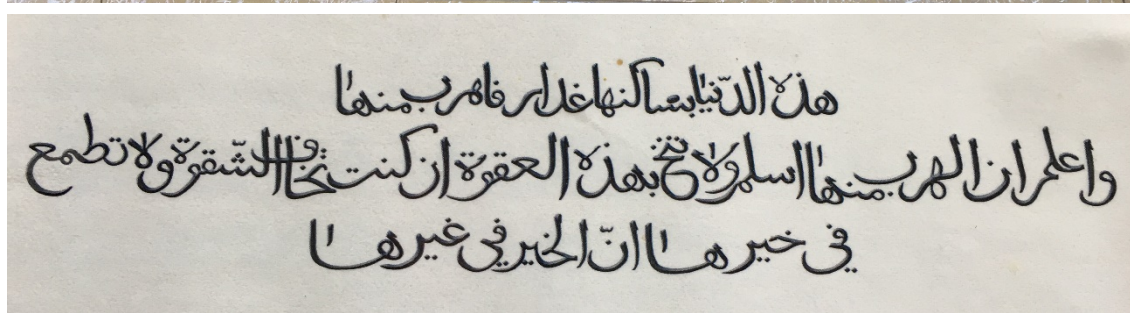 هذه الدّنيا بساكنها غدار فاهرب منها
واعلم ان الهرب منها اسلم ولا تنخ بهذه العقوة ان كنت تخاف الشّقوة ولا تطمع
في خيرها انّ الخير في غيرها